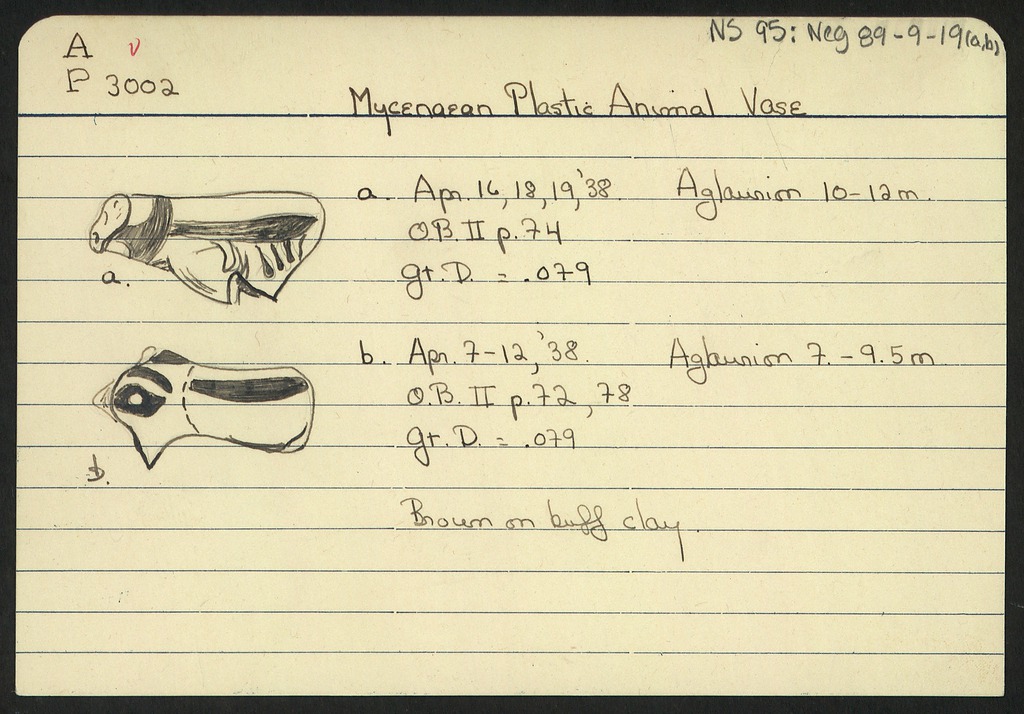 NS 95: Neg 89-9-19(a,b)
A v
P 3002
Mycenaean Plastic Animal Vase
a. Apr. 16, 18, 19, '38. Aglaurion 10-12m.
O.B. II p.74
gr. D. = .079
a.
b. Apr. 7-12, '38. Aglaurion 7.-9.5m
O.B. II p.72, 78
gr. D. = .079
b.
Brown on buff clay.